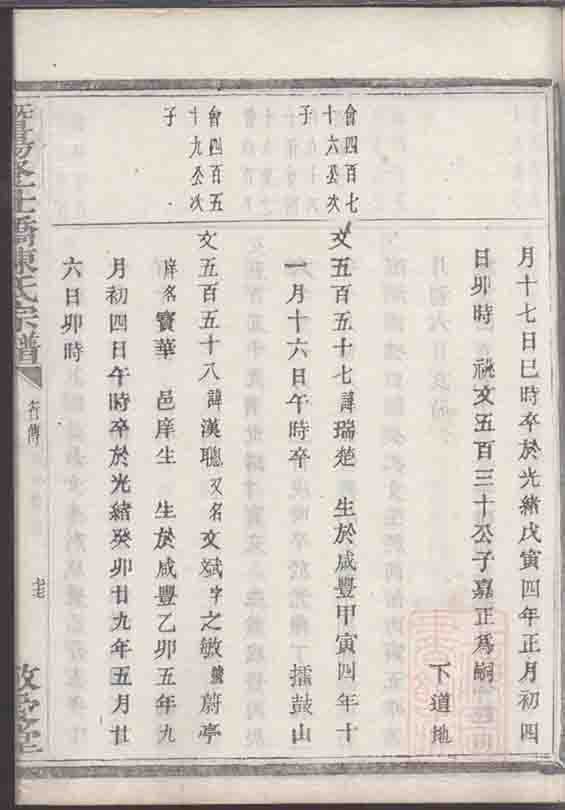 月十七日巳時卒於光緒戊寅四年正月初四
日卯時 祧文五百三十公子嘉正爲嗣
下道地
會四百七
十六公次
子
文五百五十七諱瑞楚 生於咸豐甲寅四年十
一月十六日午時卒 擂鼓山
會四百五
十九公次
子
文五百五十八諱漢聰又名文斌字之敏號蔚亭
庠名寶華 邑庠生 生於咸豐乙卯五年九
月初四日午時卒於光緒癸卯廿九年五月廿
六日卯時
橋陳氏宗譜